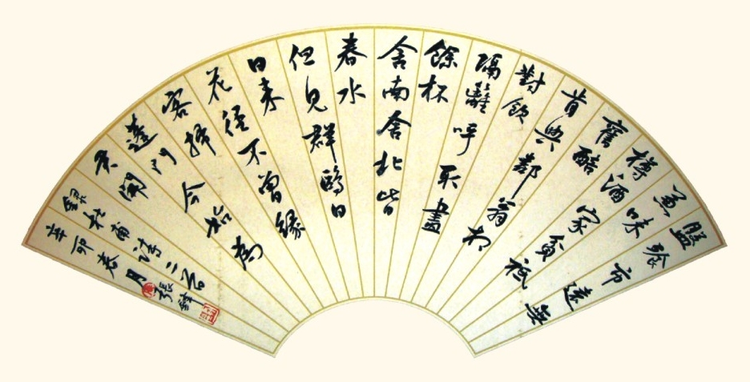 盤飧市遠無
兼味
樽酒家貧祗
舊醅
肯與鄰翁相
對飲
隔籬呼取盡
餘杯
舍南舍北皆
春水
但見群鷗日
日來
花徑不曾緣
客掃
蓬門今始為
君開
錄杜甫詩
辛卯春月張